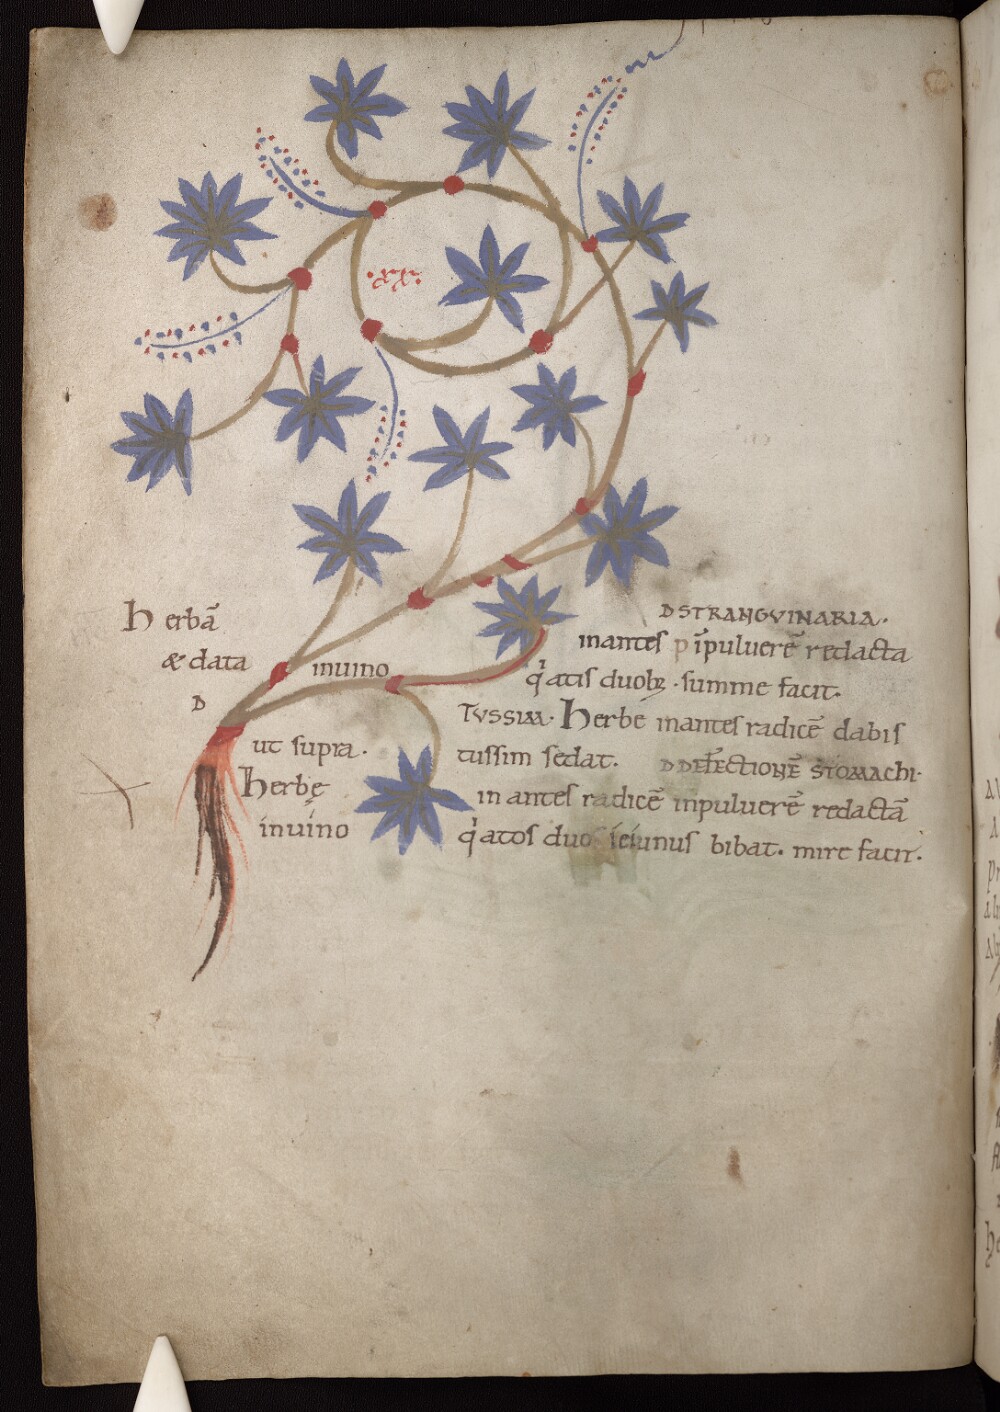 .xx.
D STRANGVINARIA.
Herbā inantes p īpuluerē redacta
& data inuino qͥatis duobꝫ. summe facit.
D TVSSIM. Herbe inantes radicē dabis
ut supra. tussim sedat. D DEFECTIONĒ STOMACHI.
Herbę inantes radicē inpuluerē redactā
inuino qͥatos duos ieiunus bibat. mire facit.